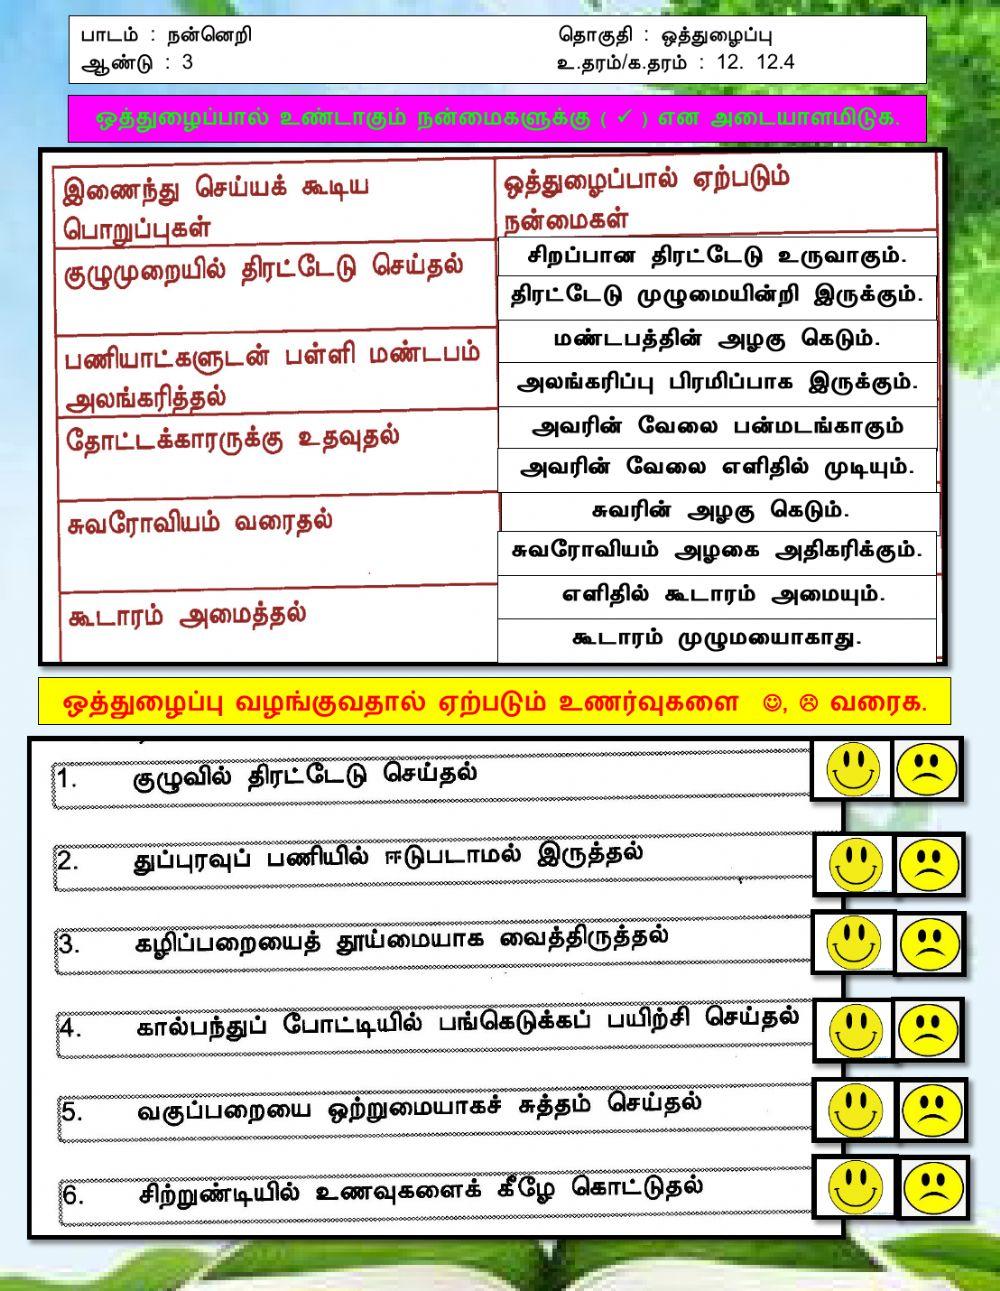 பாடம் : நன்னெறி தொகுதி : ஒத்துழைப்பு
ஆண்டு : 3 உ.தரம்/க.தரம் : 12. 12.4
ஒத்துழைப்பால் உண்டாகும் நன்மைகளுக்கு ( ✓ ) என அடையாளமிடுக.
இணைந்து செய்யக் கூடிய
பொறுப்புகள்
ஒத்துழைப்பால் ஏற்படும்
நன்மைகள்
குழுமுறையில் திரட்டேடு செய்தல்
சிறப்பான திரட்டேடு உருவாகும்.
திரட்டேடு முழுமையின்றி இருக்கும்.
பணியாட்களுடன் பள்ளி மண்டபம்
அலங்கரித்தல்
மண்டபத்தின் அழகு கெடும்.
அலங்கரிப்பு பிரமிப்பாக இருக்கும்.
தோட்டக்காரருக்கு உதவுதல்
அவரின் வேலை பன்மடங்காகும்
அவரின் வேலை எளிதில் முடியும்.
சுவரோவியம் வரைதல்
சுவரின் அழகு கெடும்.
சுவரோவியம் அழகை அதிகரிக்கும்.
கூடாரம் அமைத்தல்
எளிதில் கூடாரம் அமையும்.
கூடாரம் முழுமயையாகாது.
ஒத்துழைப்பு வழங்குவதால் ஏற்படும் உணர்வுகளை ☺, ☹ வரைக.
1. குழுவில் திரட்டேடு செய்தல்
2. துப்புரவுப் பணியில் ஈடுபடாமல் இருத்தல்
3. கழிப்பறையைத் தூய்மையாக வைத்திருத்தல்
4. கால்பந்துப் போட்டியில் பங்கெடுக்கப் பயிற்சி செய்தல்
5. வகுப்பறையை ஒற்றுமையாகச் சுத்தம் செய்தல்
6. சிற்றுண்டியில் உணவுகளைக் கீழே கொட்டுதல்